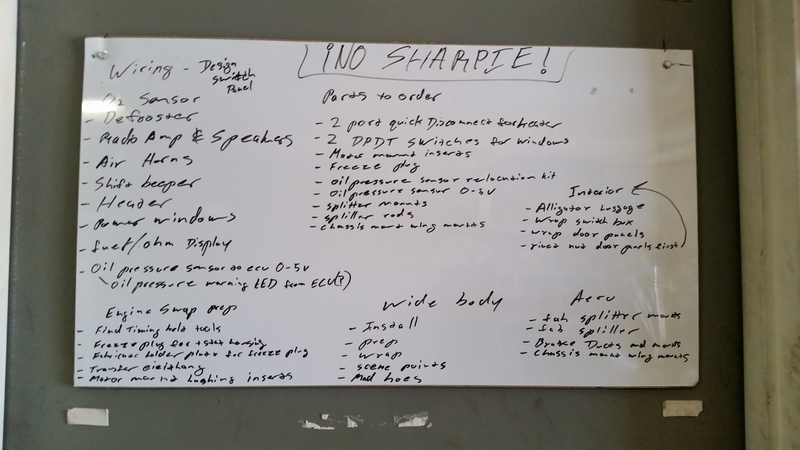 !NO SHARPIE!
Wiring - Design
switch
Panel
- O2 Sensor
- Defroster
- Radio Amp & Speakers
- Air Horns
- Shift beeper
- Heater
- Power windows
- fuel/ohm Display
- Oil pressure sensor to ecu 0-5v
Oil pressure warning LED from ECU(?)
Parts to order
- 2 port quick Disconnect for heater
- 2 DPDT switches for windows
- Motor mount inserts
- Freeze plug
- Oil pressure sensor relocation kit
- Oil pressure sensor 0-5v
- splitter mounts
- rods
- chassis mount wing mounts
Interior
- Alligator Luggage
- wrap switch box
- wrap door panels
- rivet nut door panels first
Engine Swap prep
- Find Timing hold tools
- Freeze plug for tstat housing
- Fabricate holder plate for freeze plug
- Transfer
- Motor mount bushing inserts
Wide body
- Install
- prep
- wrap
- scene points
- Mad hoes
Aero
- fab splitter mounts
- fab
- Brake Ducts and mounts
- Chassis mount wing mounts